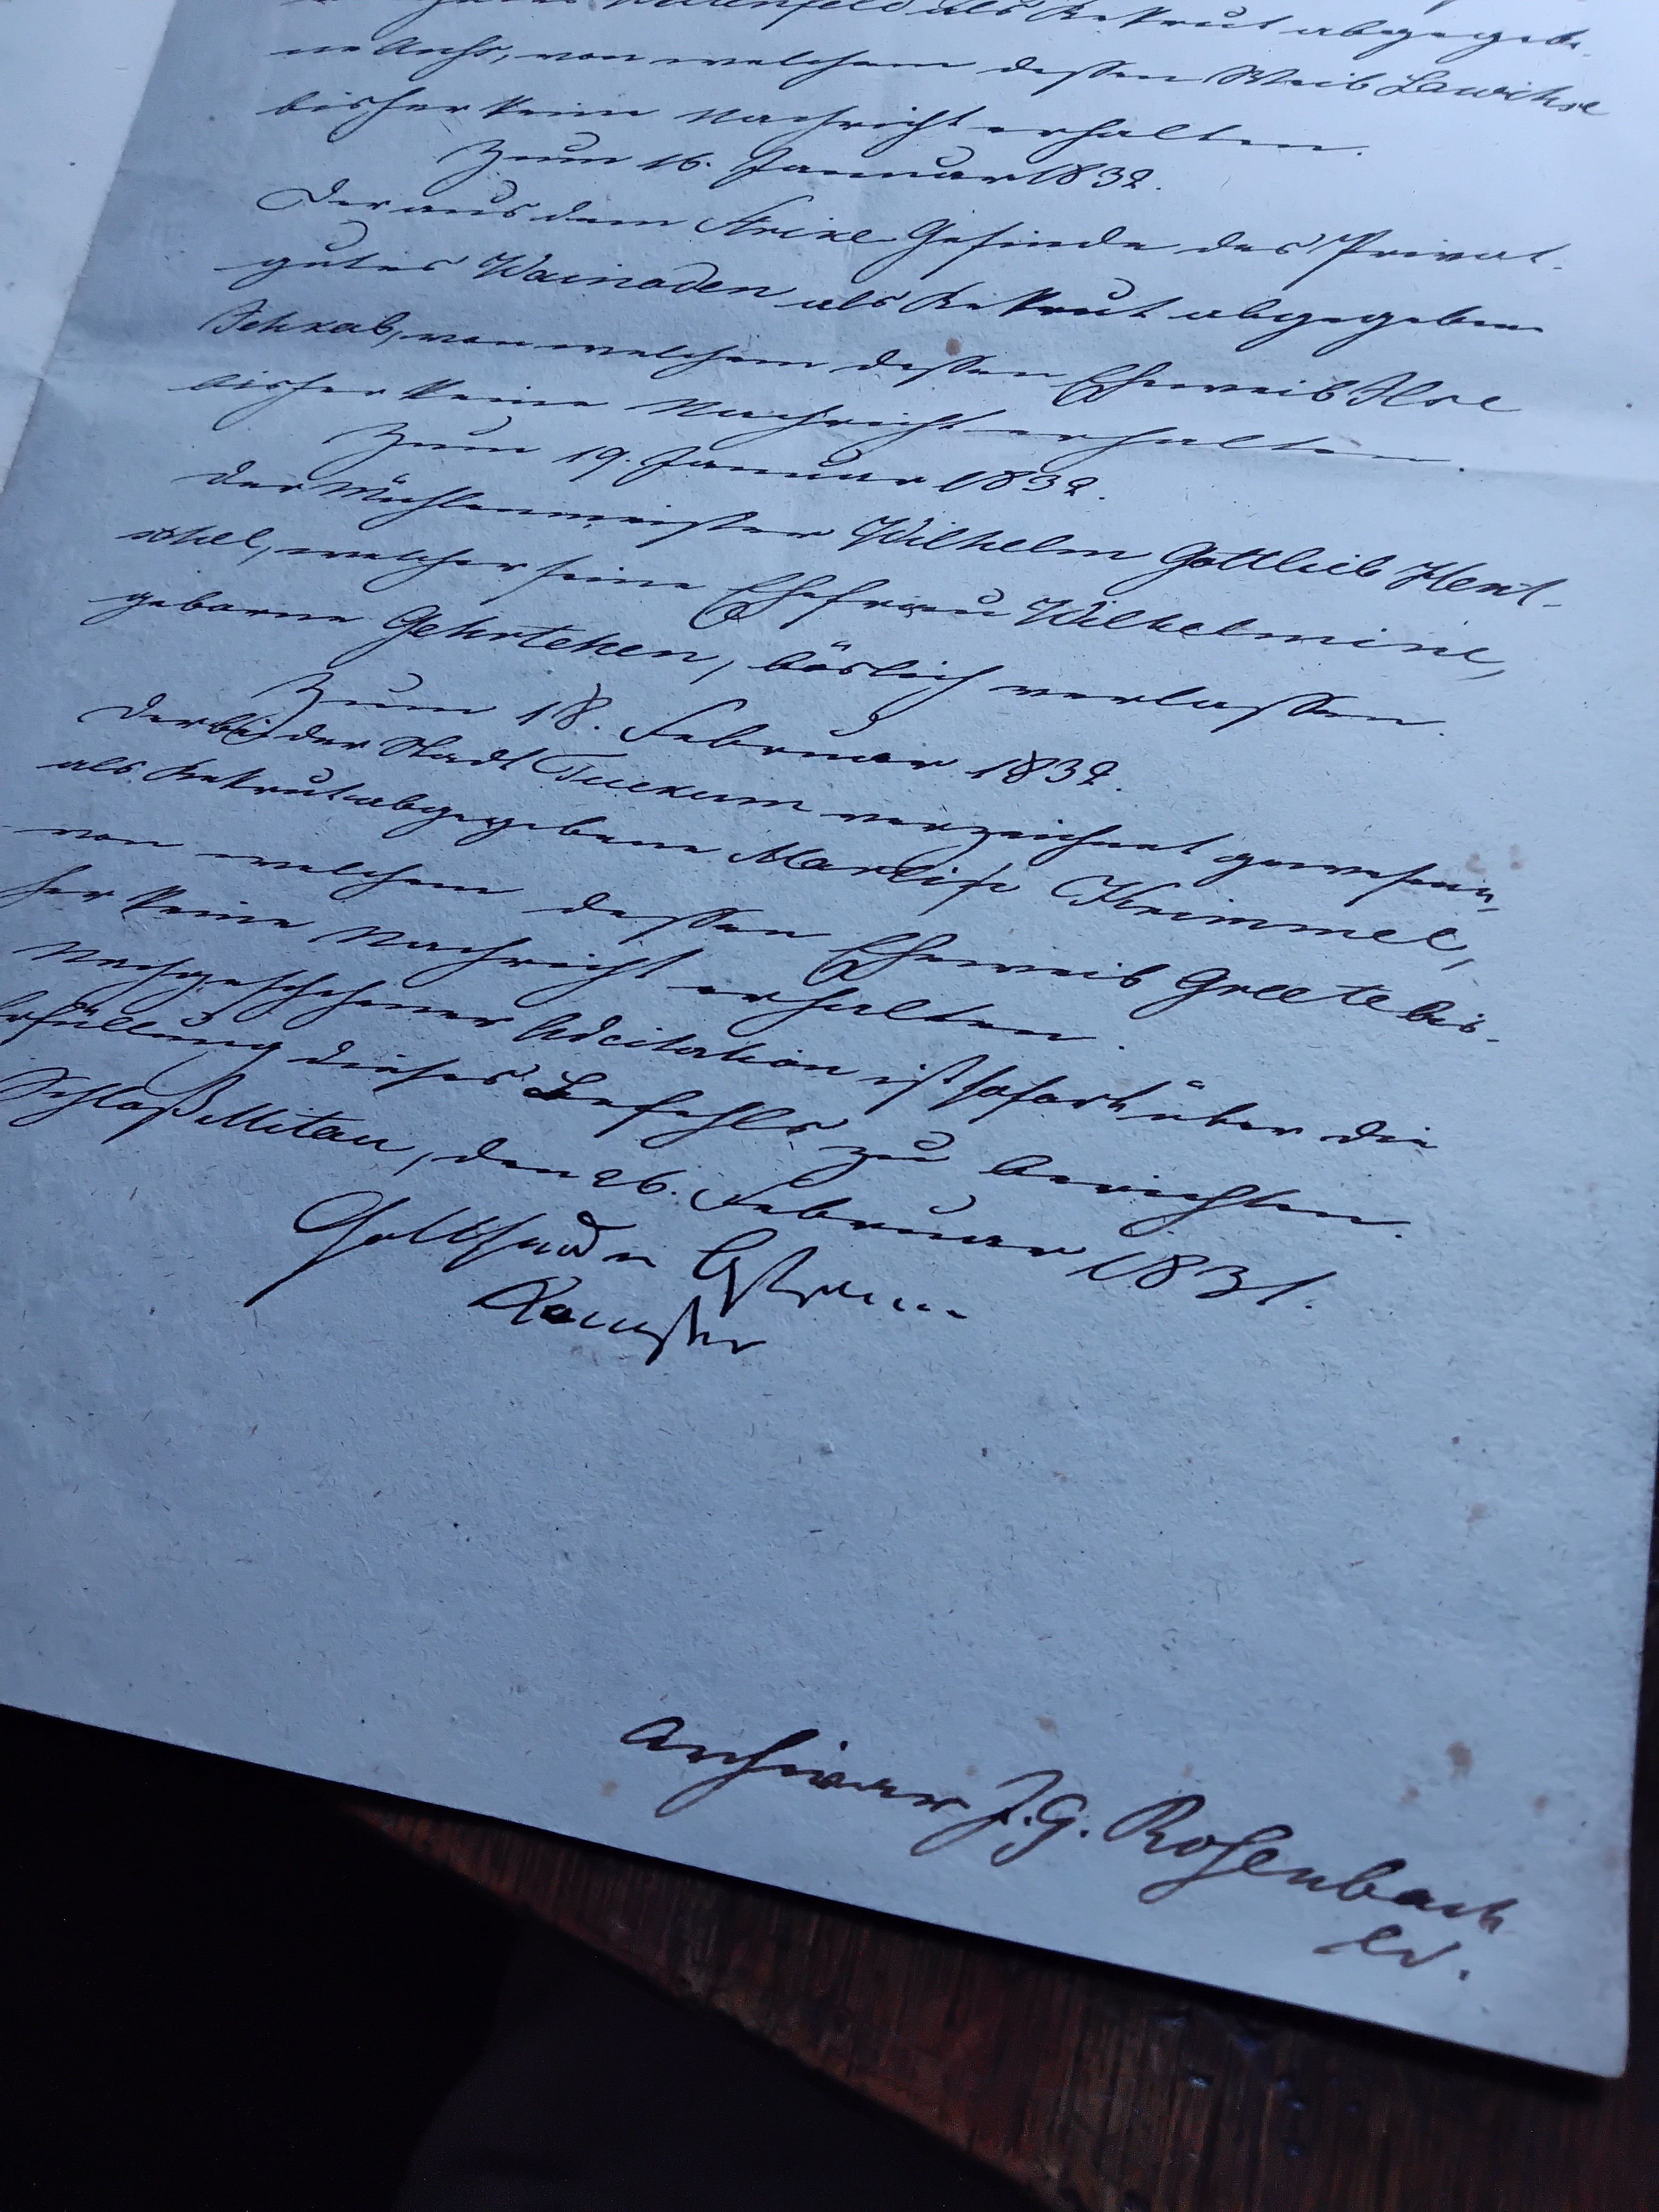 als Rekrut abgegebe-
ne Anss, von welchem dessen Weib Lawihse
bisher keine Nachricht erhalten.
Zum 16. Januar 1832.
Der aus dem Strike Gesinde des Privat-
gutes Wainoden als Rekrut abgegebene
Jehkab, von welchem dessen Eheweib Ilse
bisher keine Nachricht erhalten.
Zum 19. Januar 1832.
Der Mühlenmeister Wilhelm Gottlieb Hent-
schel, welcher seine Ehefrau Wilhelmine,
geborne Gehrtchen, böslich verlassen.
Zum 18. Februar 1832.
Der bei der Stadt Tuckum verzeichnet gewesene,
als Rekrut abgegebene Martin Krimmel,
von welchem dessen Eheweib Greete bis-
her keine Nachricht erhalten.
Nach geschehener Adcitation ist sofort über die
Erfüllung dieses Befehls zu berichten.
Schloß Mitau, den 26. Februar 1831.
Archivar J. G. Rosenbach